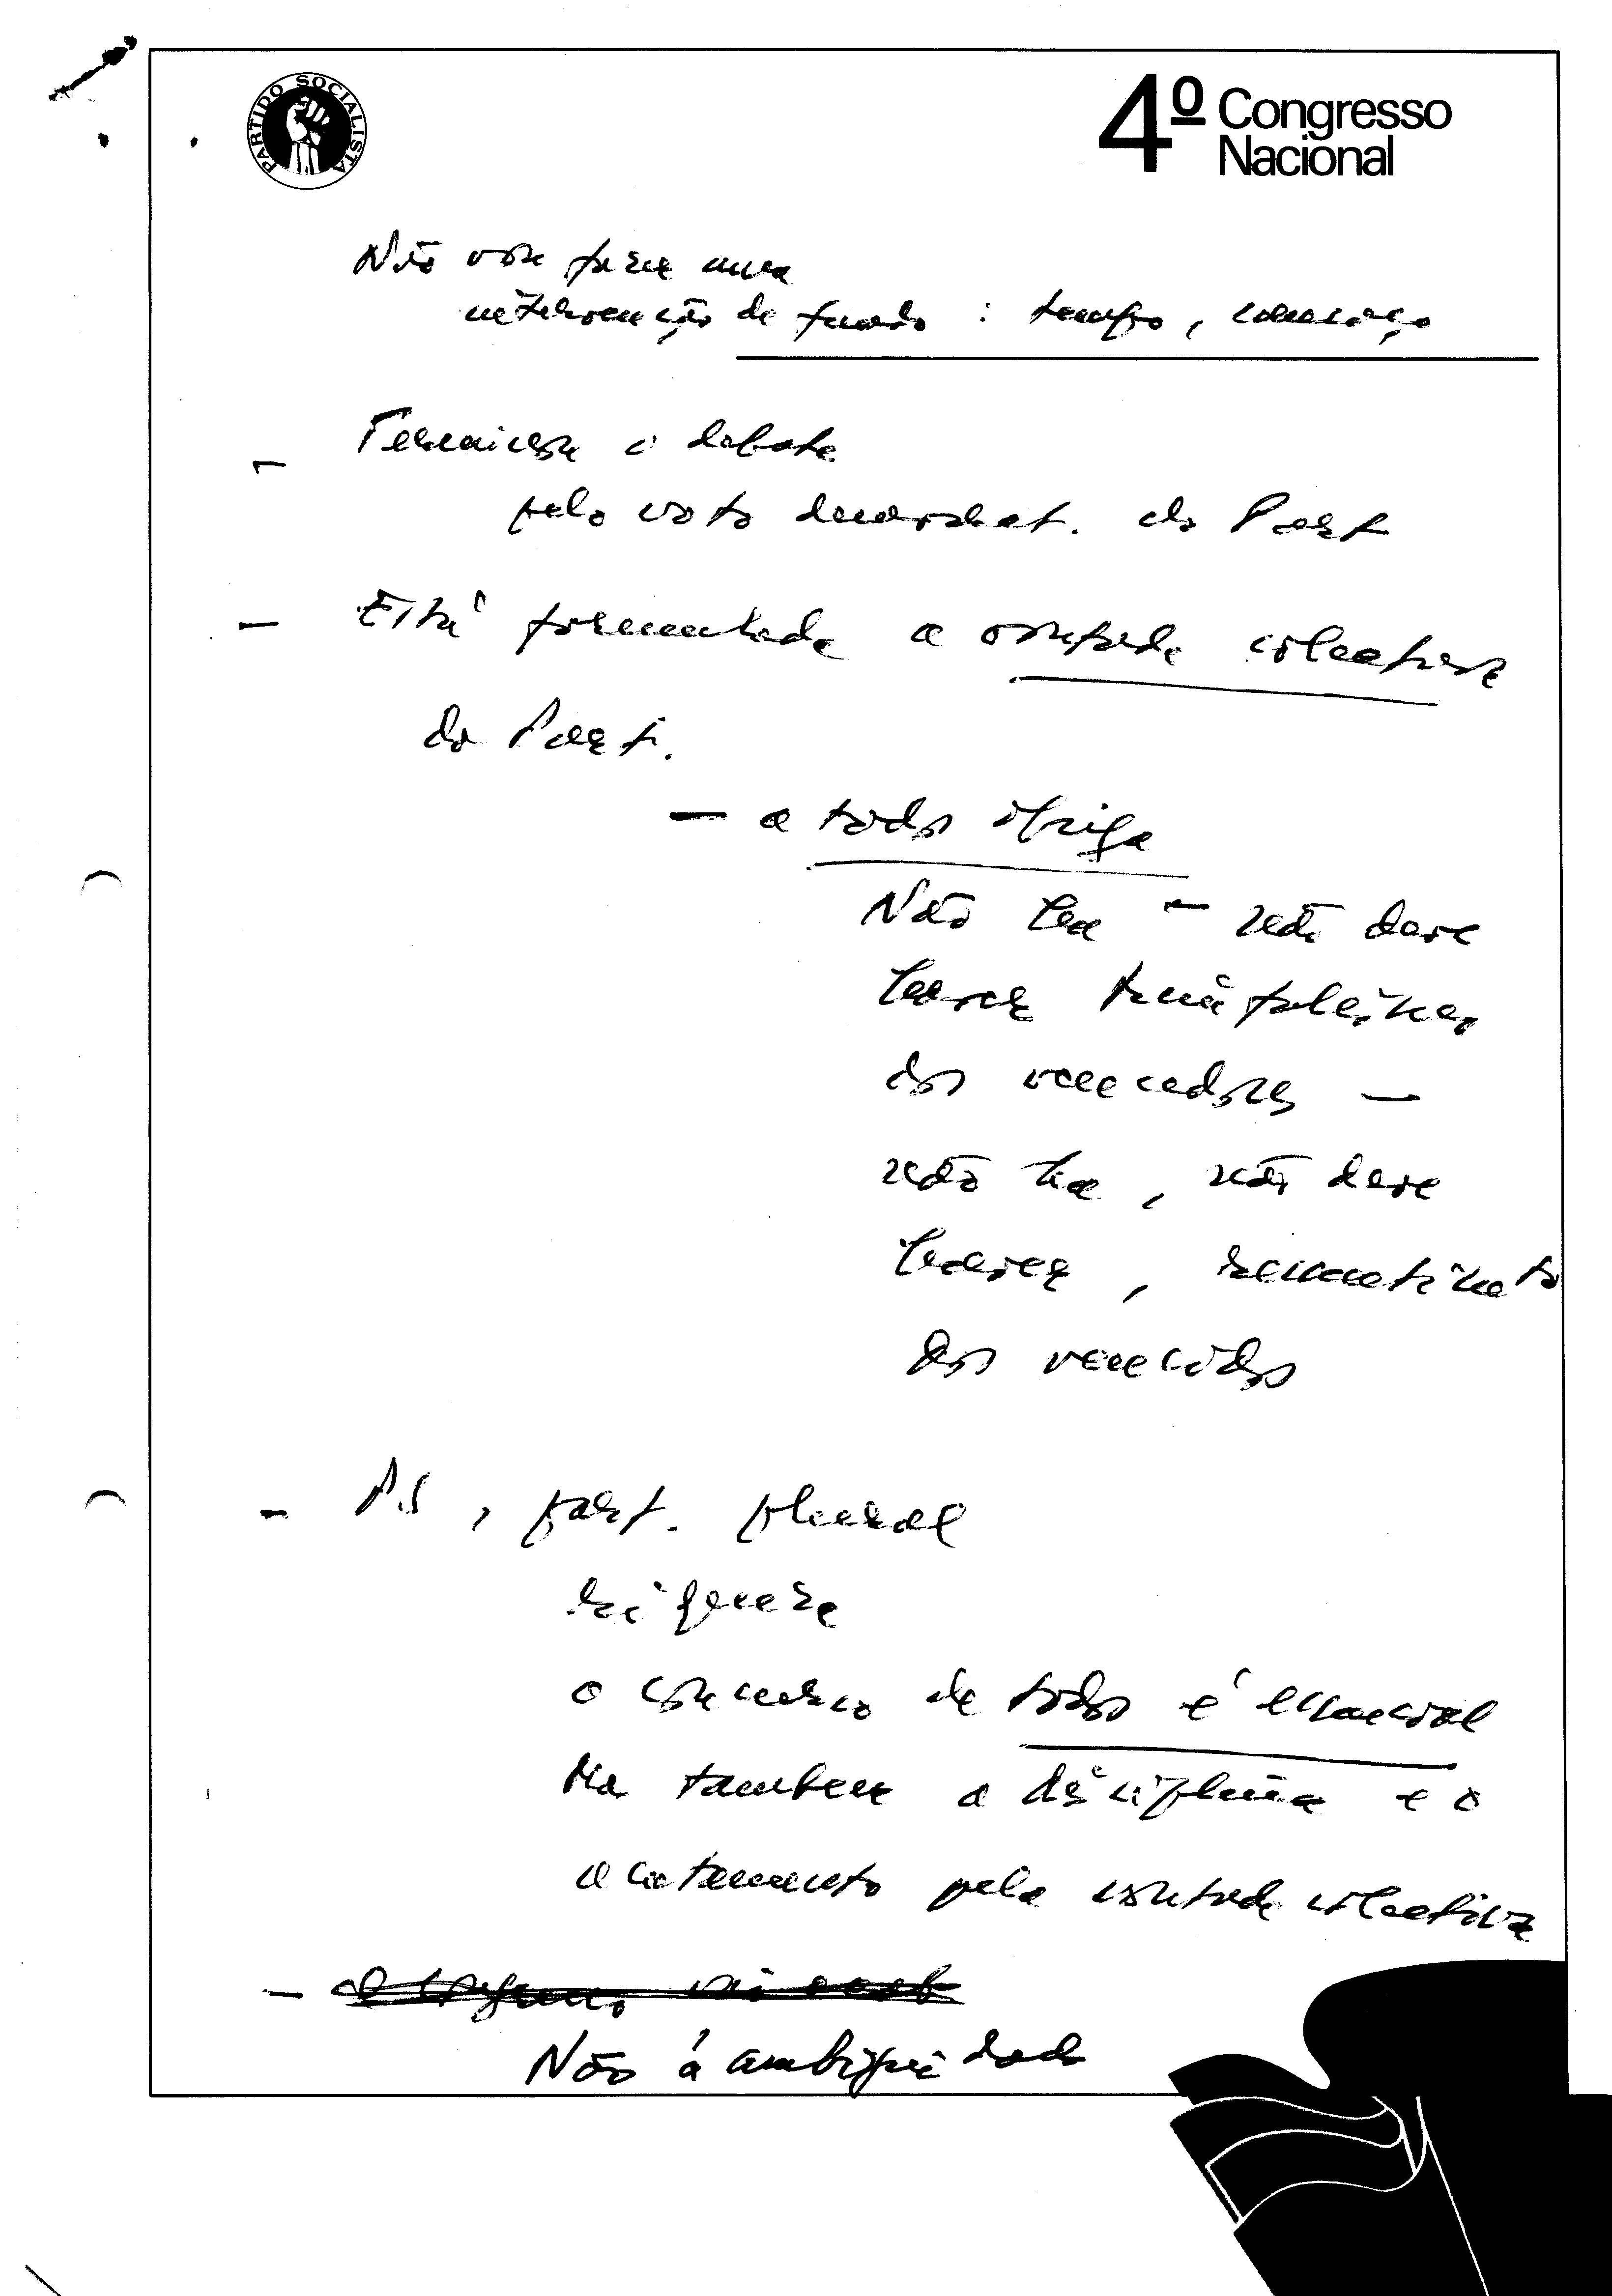 PARTIDO SOCIALISTA
4º Congresso
Nacional
Não vou fazer uma
intervenção de fundo : tempo, cansaço
- Terminou o debate
pelo voto democrat. do Part
- Está formulada a vontade colectiva
do Part.
- a todos obriga
Não há - não deve
haver triunfalismo
dos vencedores -
não há, não deve
haver, ressentimento
dos vencidos
- P.S, part. plural
o concurso de todos é essencial
Mas também a disciplina e o
acatamento pela vontade colectiva
-
Não à ambiguidade